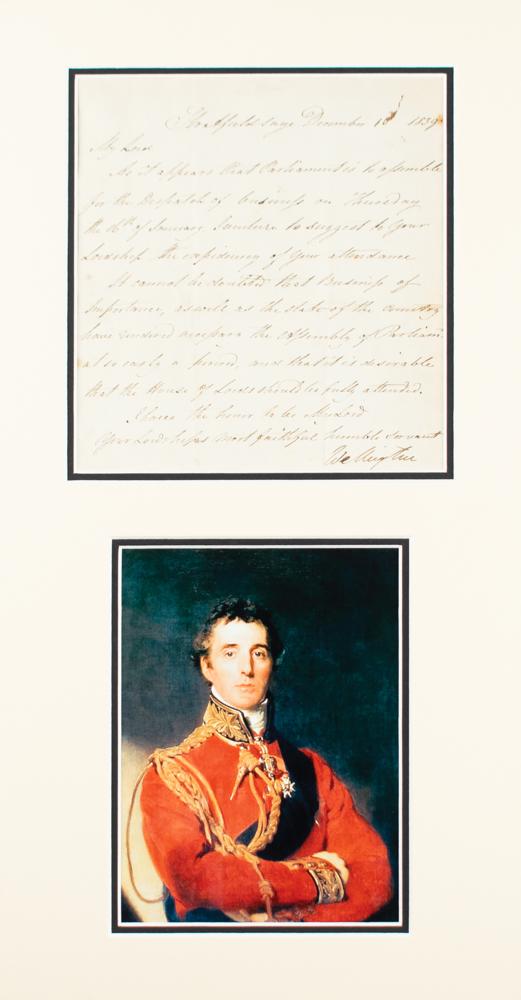 Strathfield saye December 18 1839
My Lord
As it appears that Parliament is to assemble
for the Despatch of business on Thursday
the 16th of January, I venture to suggest to your
Lordship the expediency of your attendance
It cannot be doubted that Business of
Importance, as well as the state of the country
have rendered necessary the assembly of Parliam.
at so early a period, and that it is desirable
that the House of Lords should be fully attended.
I have the honor to be My Lord
Your Lordships most faithful humble Servant
Wellington